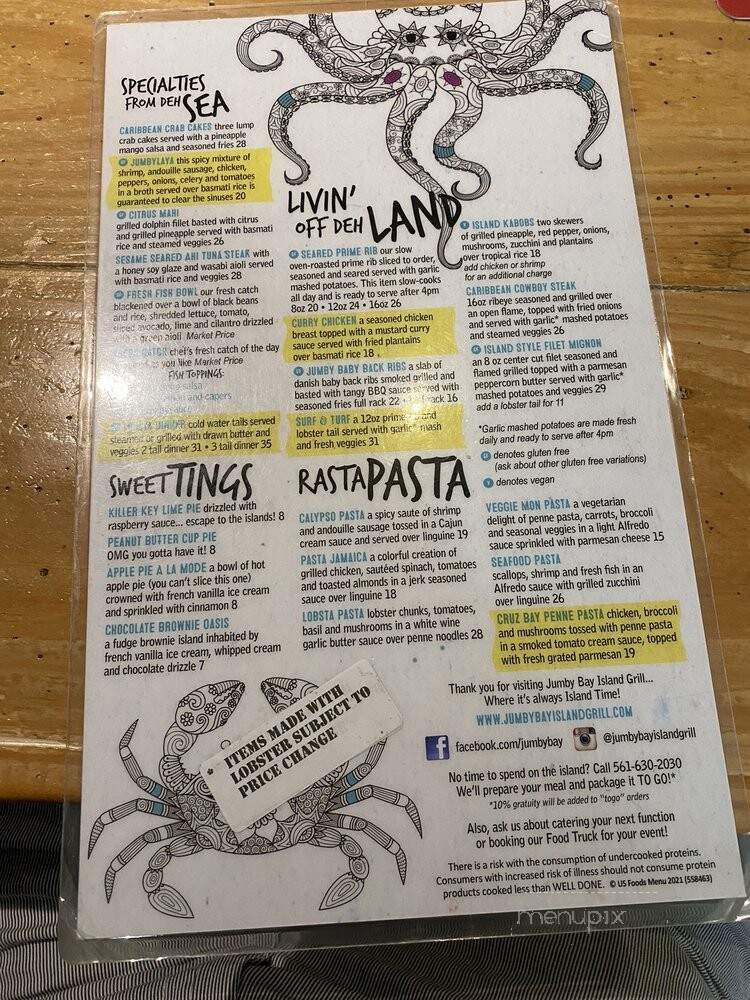 SPECIALTIES
FROM DEH SEA
CARIBBEAN CRAB CAKES three lump
crab cakes served with a pineapple
mango salsa and seasoned fries 28
JUMBYLAYA this spicy mixture of
shrimp, andouille sausage, chicken,
peppers, onions, celery and tomatoes
in a broth served over basmati rice is
guaranteed to clear the sinuses 20
CITRUS MAHI
grilled dolphin fillet basted with citrus
and grilled pineapple served with basmati
rice and steamed veggies 26
SESAME SEARED AHI TUNA STEAK with
a honey soy glaze and wasabi aioli served
with basmati rice and veggies 28
FRESH FISH BOWL our fresh catch
blackened over a bowl of black beans
and rice, shredded lettuce, tomato,
sliced avocado, lime and cilantro drizzled
with green aioli Market Price
CATCH chef's fresh catch of the day
as you like Market Price
FISH TOPPINGS:
salsa
and capers
DINNER cold water tails served
steamed or grilled with drawn butter and
veggies 2 tail dinner 31 • 3 tail dinner 35
LIVIN'
OFF DEH LAND
SEARED PRIME RIB our slow
oven-roasted prime rib sliced to order,
seasoned and seared served with garlic
mashed potatoes. This item slow-cooks
all day and is ready to serve after 4pm
8oz 20 • 12oz 24 • 16oz 26
CURRY CHICKEN a seasoned chicken
breast topped with a mustard curry
sauce served with fried plantains
over basmati rice 18
JUMBY BABY BACK RIBS a slab of
danish baby back ribs smoked grilled and
basted with tangy BBQ sauce served with
seasoned fries full rack 22 • rack 16
SURF & TURF a 12oz prime and
lobster tail served with garlic mash
and fresh veggies 31
V ISLAND KABOBS two skewers
of grilled pineapple, red pepper, onions,
mushrooms, zucchini and plantains
over tropical rice 18
add chicken or shrimp
for an additional charge
CARIBBEAN COWBOY STEAK
16oz ribeye seasoned and grilled over
an open flame, topped with fried onions
and served with garlic* mashed potatoes
and steamed veggies 26
ISLAND STYLE FILET MIGNON
an 8 oz center cut filet seasoned and
flamed grilled topped with a parmesan
peppercorn butter served with garlic*
mashed potatoes and veggies 29
add a lobster tail for 11
*Garlic mashed potatoes are made fresh
daily and ready to serve after 4pm
denotes gluten free
(ask about other gluten free variations)
V denotes vegan
SWEET TINGS
KILLER KEY LIME PIE drizzled with
raspberry sauce... escape to the islands! 8
PEANUT BUTTER CUP PIE
OMG you gotta have it! 8
APPLE PIE A LA MODE a bowl of hot
apple pie (you can't slice this one)
crowned with french vanilla ice cream
and sprinkled with cinnamon 8
CHOCOLATE BROWNIE OASIS
a fudge brownie island inhabited by
french vanilla ice cream, whipped cream
and chocolate drizzle 7
RASTA PASTA
CALYPSO PASTA a spicy saute of shrimp
and andouille sausage tossed in a Cajun
cream sauce and served over linguine 19
PASTA JAMAICA a colorful creation of
grilled chicken, sautéed spinach, tomatoes
and toasted almonds in a jerk seasoned
sauce over linguine 18
LOBSTA PASTA lobster chunks, tomatoes,
basil and mushrooms in a white wine
garlic butter sauce over penne noodles 28
VEGGIE MON PASTA a vegetarian
delight of penne pasta, carrots, broccoli
and seasonal veggies in a light Alfredo
sauce sprinkled with parmesan cheese 15
SEAFOOD PASTA
scallops, shrimp and fresh fish in an
Alfredo sauce with grilled zucchini
over linguine 26
CRUZ BAY PENNE PASTA chicken, broccoli
and mushrooms tossed with penne pasta
in a smoked tomato cream sauce, topped
with fresh grated parmesan 19
ITEMS MADE WITH
LOBSTER SUBJECT TO
PRICE CHANGE
Thank you for visiting Jumby Bay Island Grill...
Where it's always Island Time!
WWW.JUMBYBAYISLANDGRILL.COM
f facebook.com/jumbybay @jumbybayislandgrill
No time to spend on the island? Call 561-630-2030
We'll prepare your meal and package it TO GO!*
*10% gratuity will be added to "togo" orders
Also, ask us about catering your next function
or booking our Food Truck for your event!
There is a risk with the consumption of undercooked proteins.
Consumers with increased risk of illness should not consume protein
products cooked less than WELL DONE. © US Foods Menu 2021 (558463)
menupix